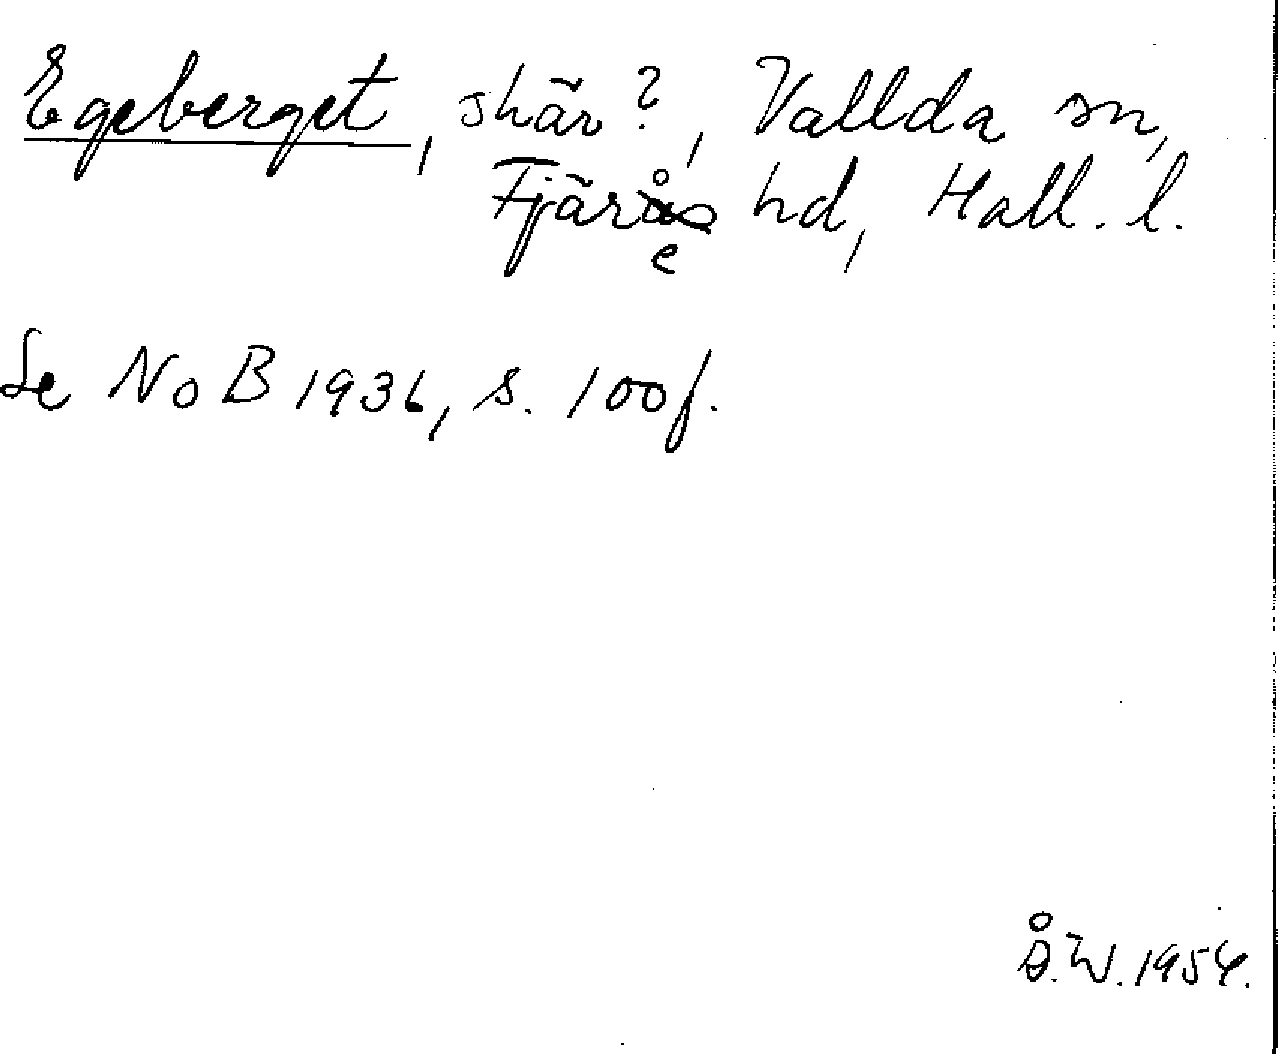 Egeberget, skär?, Vallda sn,
Fjäre hd, Hall. l.
Se NoB 1936, s. 100 f.
Å.W. 1954.